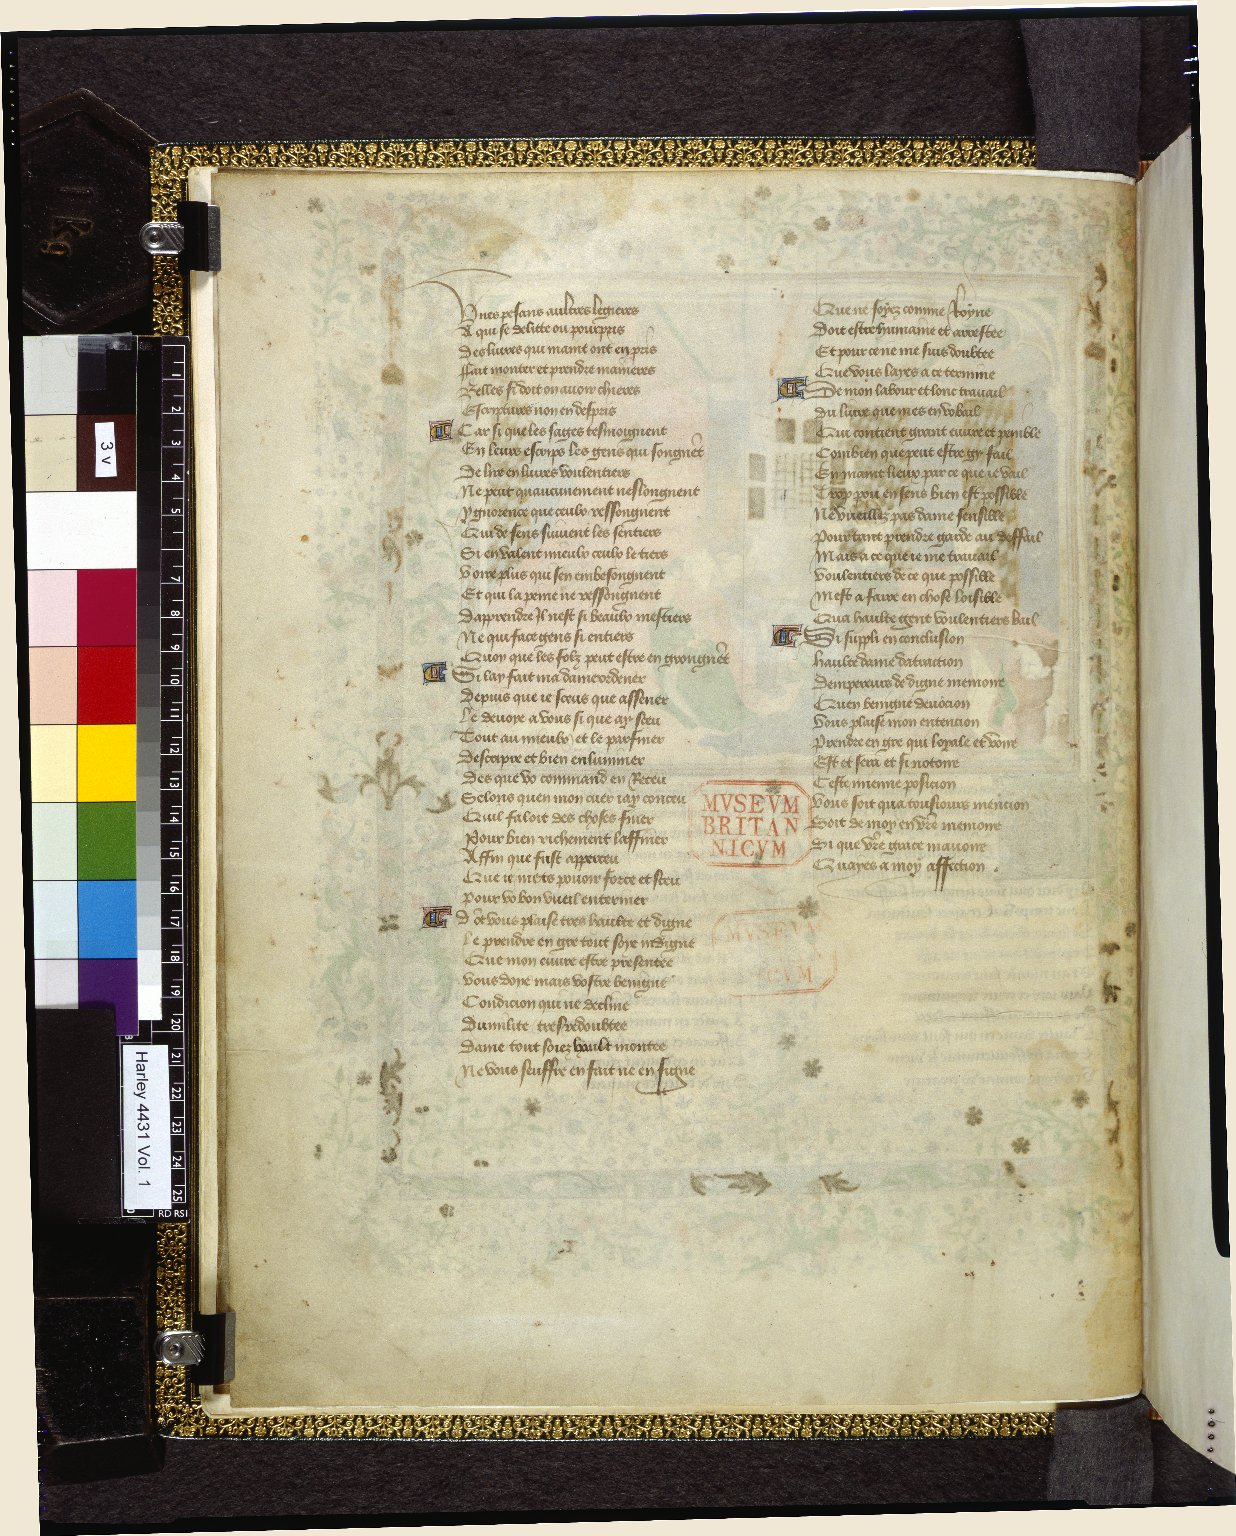 Unes pesans aultres legieres
A qui se delitte ou pourpris
Des livres qui maint ont en pris
Fait monter et prendre manieres
Belles si doit on avoir chieres
Escriptures non en despris
Car si que les sages tesmoignent
En leurs escrips les gens qui songnēt
De lire en livres voulentiers
Ne peut quaucunement neslongnent
Ygnorence que ceulx ressongnent
Qui de sens suivent les sentiers
Si en valent mieulx ceulx le tiers
Voire plus qui sen embesongnent
Et qui la peine ne ressongnent
Dapprendre Il nest si beaulx mestiers
Ne qui face gens si entiers
Quoy que les folz peut estre en grongnēt
Si lay fait ma dame ordener
Depuis que ie sceus que assener
Le devoye a vous si que ay sceu
Tout au mieulx et le parfiner
Descripre et bien enluminer
Des que vo command en Receu
Selons quen mon cuer iay conceu
Quil faloit des choses finer
Pour bien richement laffiner
Affin que fust apperceu
Que ie mets pouoir force et sceu
Pour vo bon vueil enteriner
Or vous plaise tres haulte et digne
Le prendre en gre tout soye indigne
Que mon euvre estre presentee
Vous doye mais vostre benigne
Condicion qui ne decline
Dumilite tresredoubtee
Dame tout soiez hault montee
Ne vous seuffre en fait ne en signe
Que ne soyez comme Royne
Doit estre humaine et arrestee
Et pour ce ne me suis doubtee
Que vous layes a ce termine
De mon labour et lonc travail
Du livre que mes en vo bail
Qui contient grant euvre et penible
Combien que peut estre gy fail
En maint lieux par ce que ie vail
Trop pou en sens bien est possible
Ne vueilliez pas dame sensible
Pourtant prendre garde au deffail
Mais a ce que ie me travail
Voulentiers de ce que possible
Mest a faire en chose loisible
Qua haulte gent voulentiers bail
Si suppli en conclusion
Haulte dame datraction
Dempereurs de digne memoire
Quen benigne devocion
Vous plaise mon entencion
Prendre en gre qui loyale et voire
Est et sera et si notoire
Ceste mienne posicion
Vous soit qua tousiours mencion
Soit de moy en vr̄e memoire
Si que vr̄e grace mavoire
Quayes a moy affection .
MVSEVM
BRITAN
NICVM
3 v
Harley 4431 Vol. 1